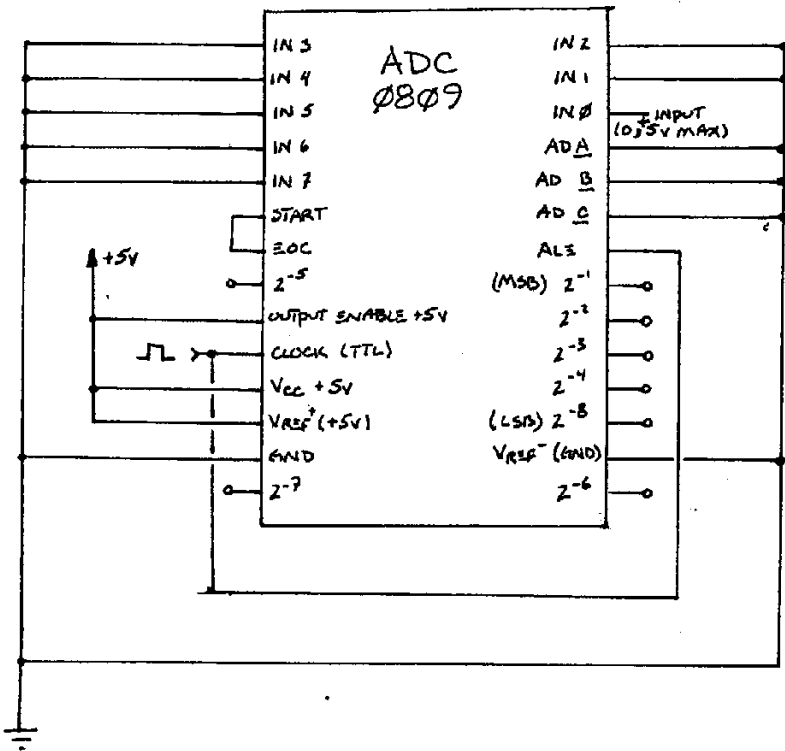 ADC
0809
IN 3
IN 4
IN 5
IN 6
IN 7
START
EOC
2-5
OUTPUT ENABLE +5V
CLOCK (TTL)
Vcc +5V
VREF+ (+5V)
GND
2-7
IN 2
IN 1
IN 0
AD A
AD B
AD C
ALE
(MSB) 2-1
2-2
2-3
2-4
(LSB) 2-8
VREF- (GND)
2-6
INPUT
(0,+5V MAX)
+5V